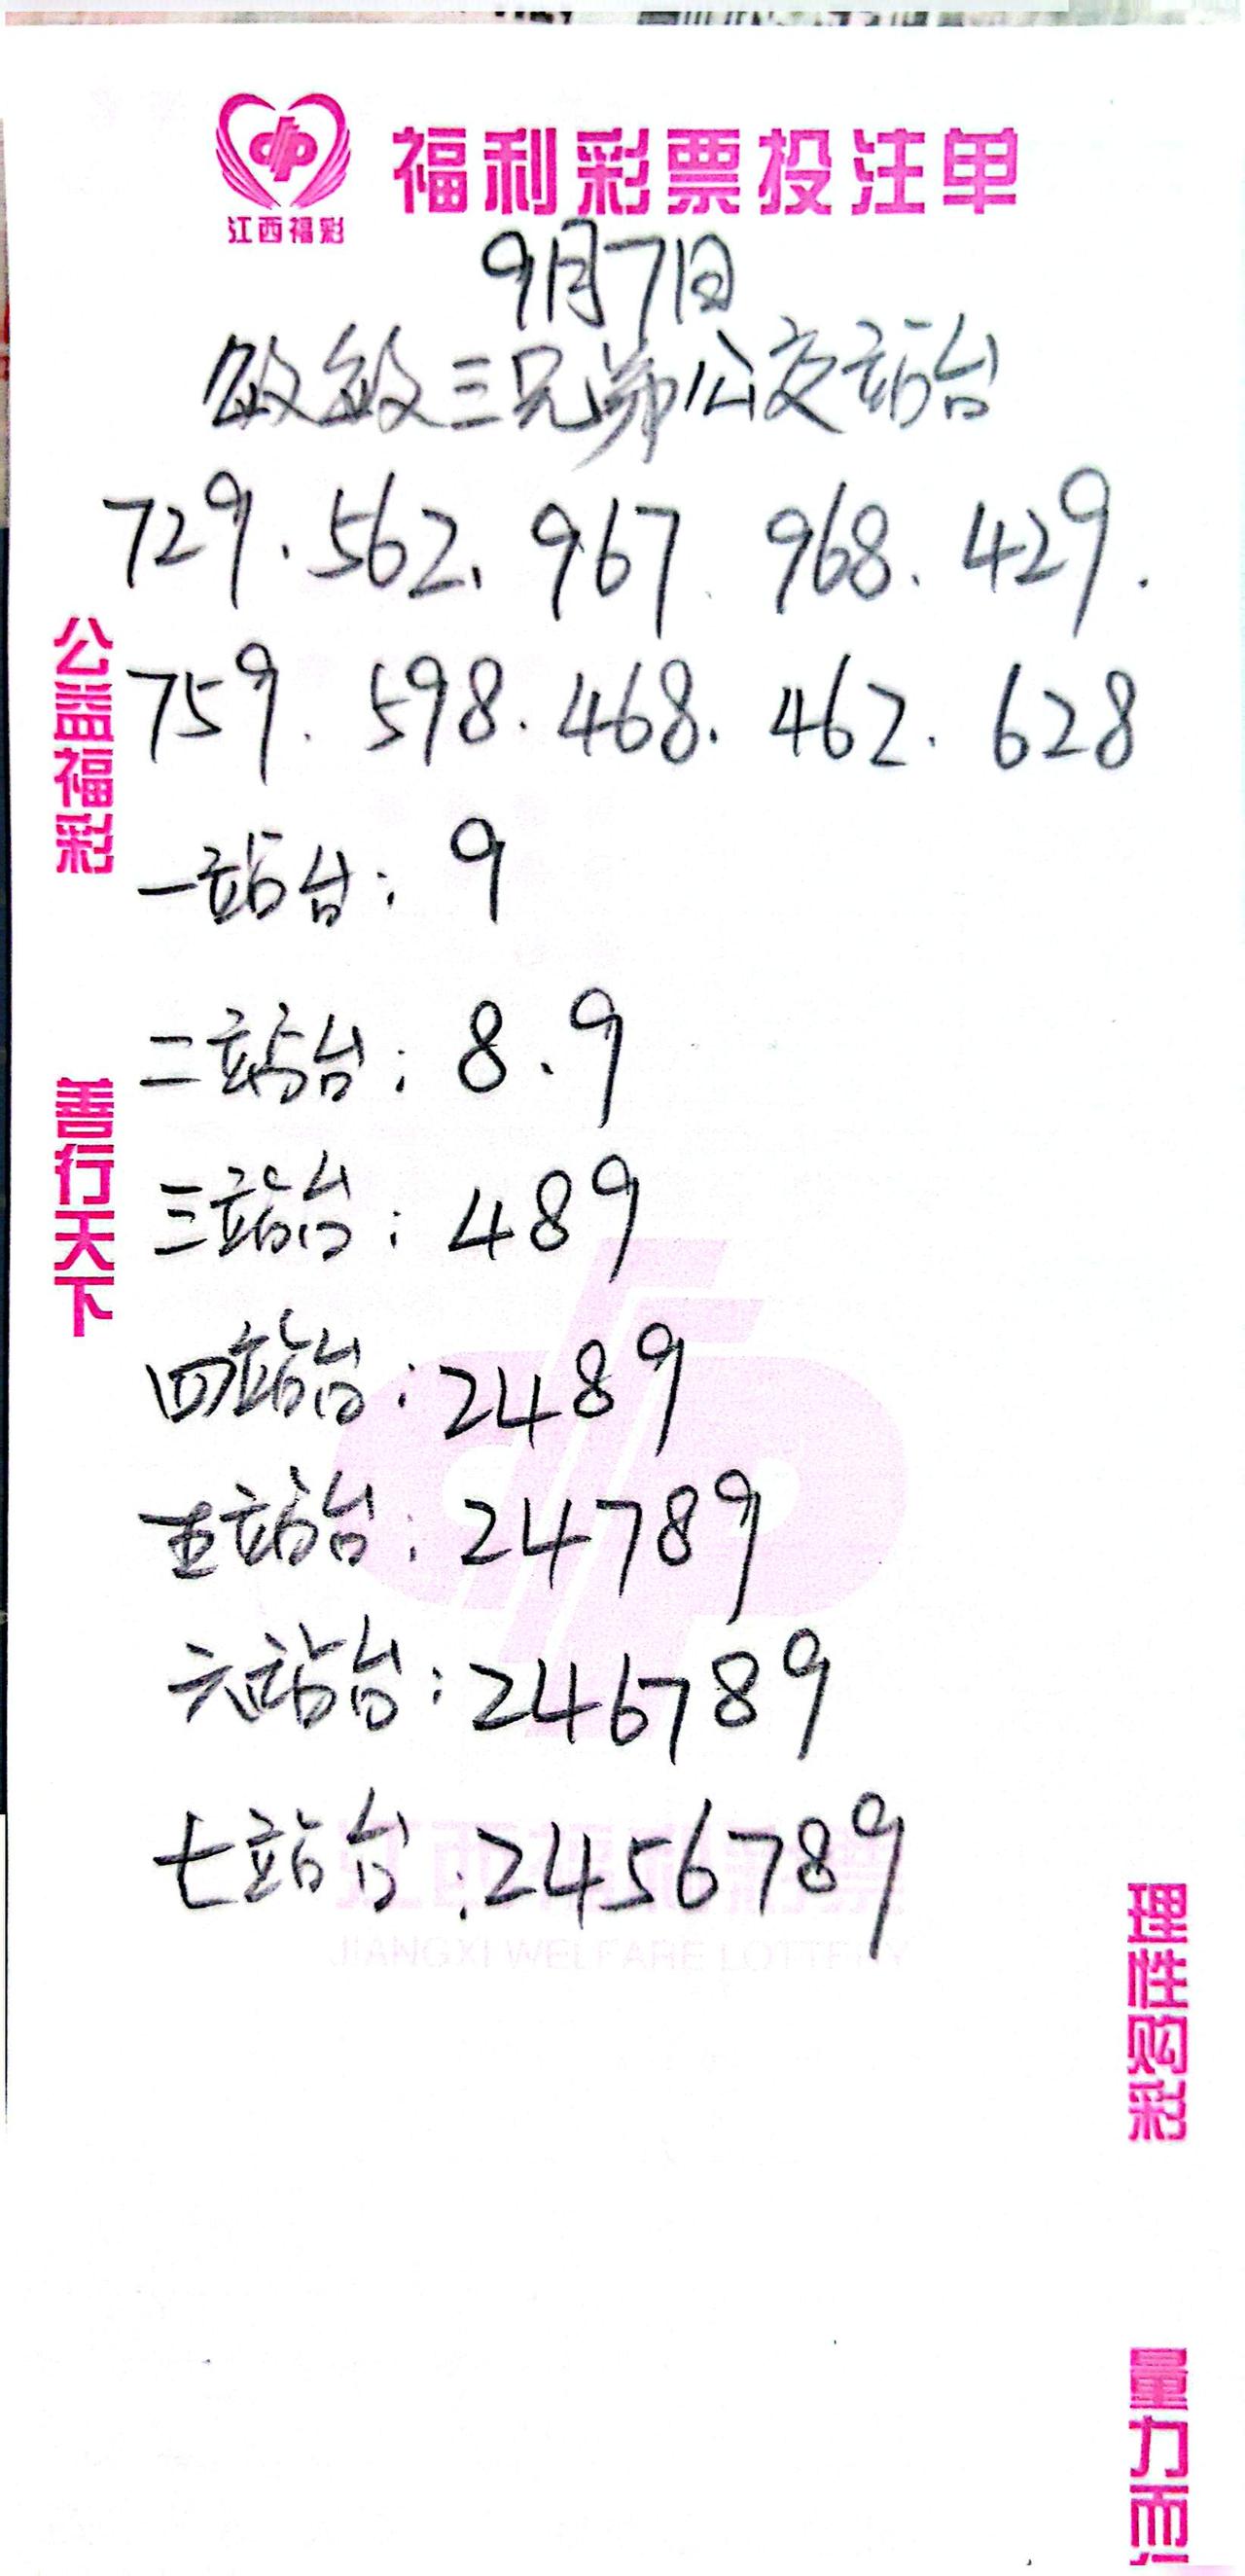 福利彩票投注单
江西福彩
9月7日
敏敏三兄弟公交站台
729.562.967.968.429.
759.598.468.462.628
一站台:9
二站台:8.9
三站台:489
四站台:2489
五站台:24789
六站台:246789
七站台:2456789
公益福彩
善行天下
江西福利彩票
JIANGXI WELFARE LOTTERY
理性购彩
量力而